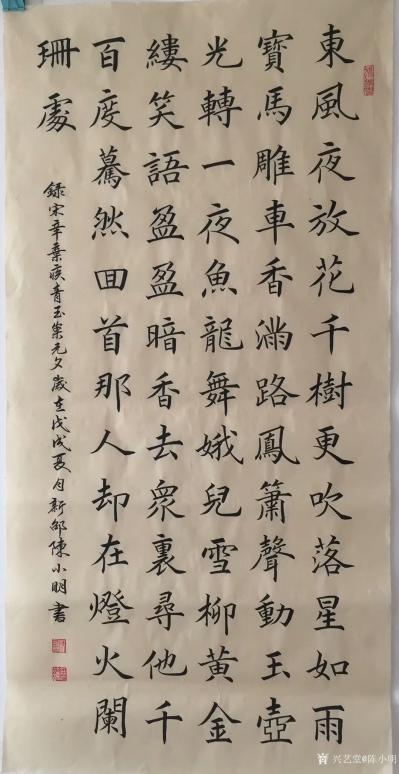 東風夜放花千樹更吹落星如雨
寶馬雕車香滿路鳳簫聲動玉壺
光轉一夜魚龍舞娥兒雪柳黃金
縷笑語盈盈暗香去衆裏尋他千
百度驀然回首那人却在燈火闌
珊處
錄宋辛棄疾青玉案元夕歲在戊戌夏月新邵陳小明書
兴艺堂@陈小明